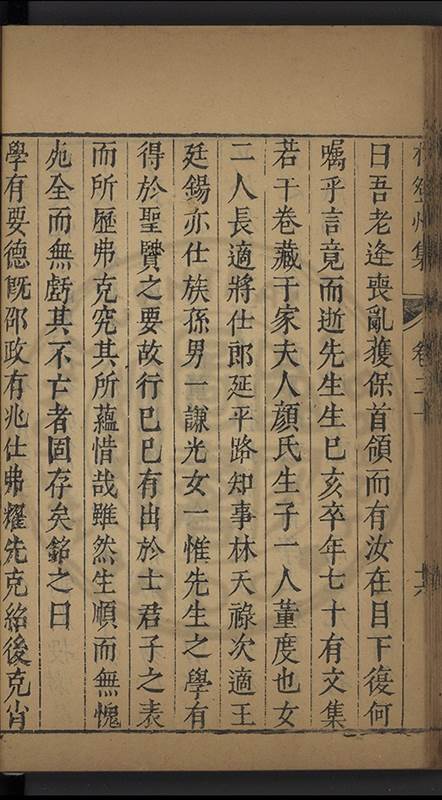 曰吾老逢喪亂獲保首領而有汝在目下復何
囑乎言竟而逝先生生巳亥卒年七十有文集
若干卷藏于家夫人顔氏生子一人董度也女
二人長適將仕郎延平路知事林天祿次適王
廷錫亦仕族孫男一謙光女一惟先生之學有
得於聖賢之要故行巳巳有出於士君子之表
而所歷弗克究其所蘊惜哉雖然生順而無愧
宛全而無虧其不亡者固存矣銘之曰
學有要德旣邵政有兆仕弗耀先克紹後克肖